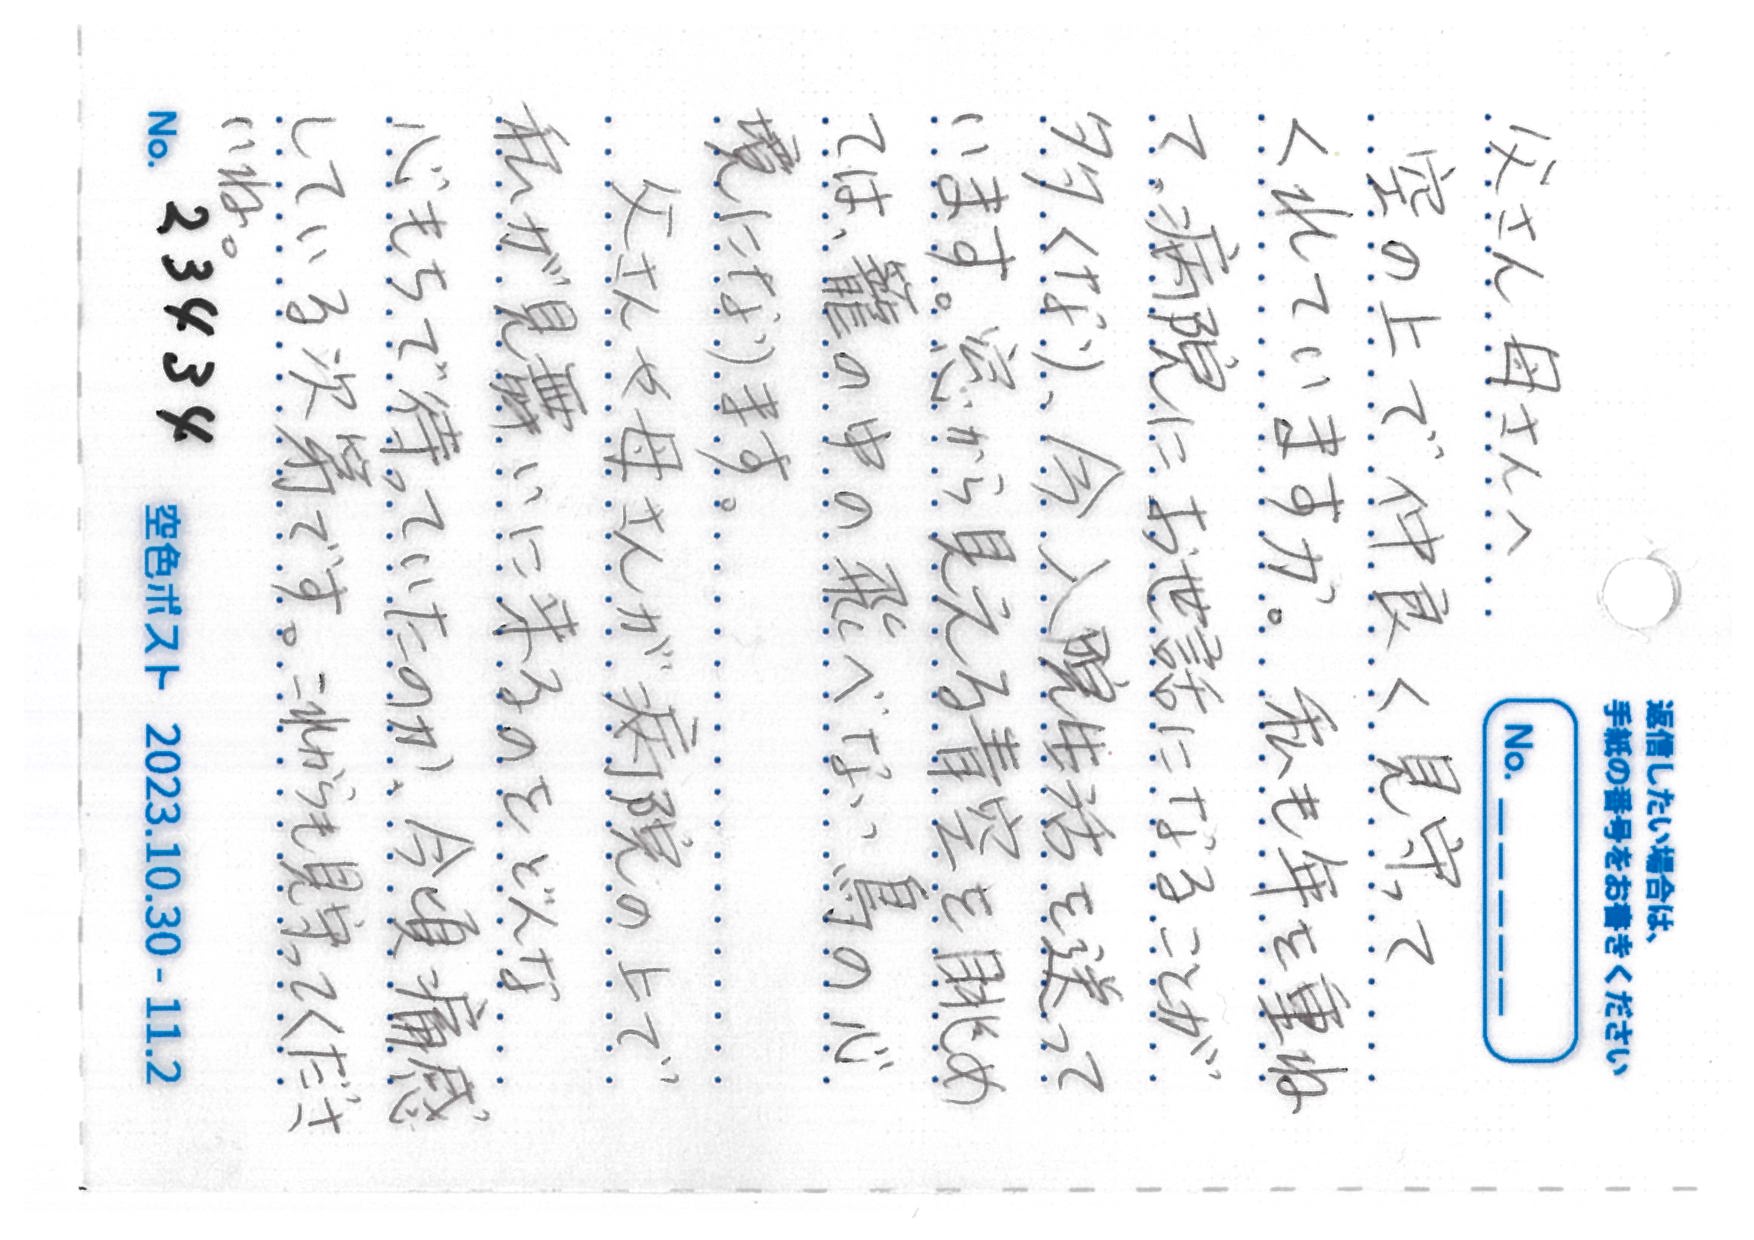 返信したい場合は、
手紙の番号をお書きください
No. _ _ _ _ _
父さん 母さんへ
空の上で仲良く見守って
くれていますか。私も年を重ね
て、病院にお世話になることが
多くなり、今入院生活を送って
います。窓から見える青空を眺め
ては、籠の中の飛べない鳥の心
境になります。
父さんや母さんが病院の上で
私が見舞いに来るのをどんな
心もちで待っていたのか、今頃痛感
している次第です。これからも見守ってくださ
いね。
No. 23434
空色ポスト 2023.10.30 - 11.2